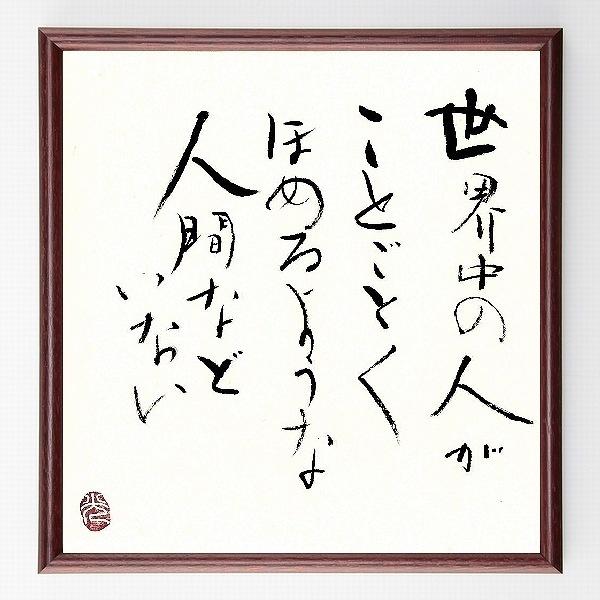 世界中の人が
ことごとく
ほめるような
人間など
いない